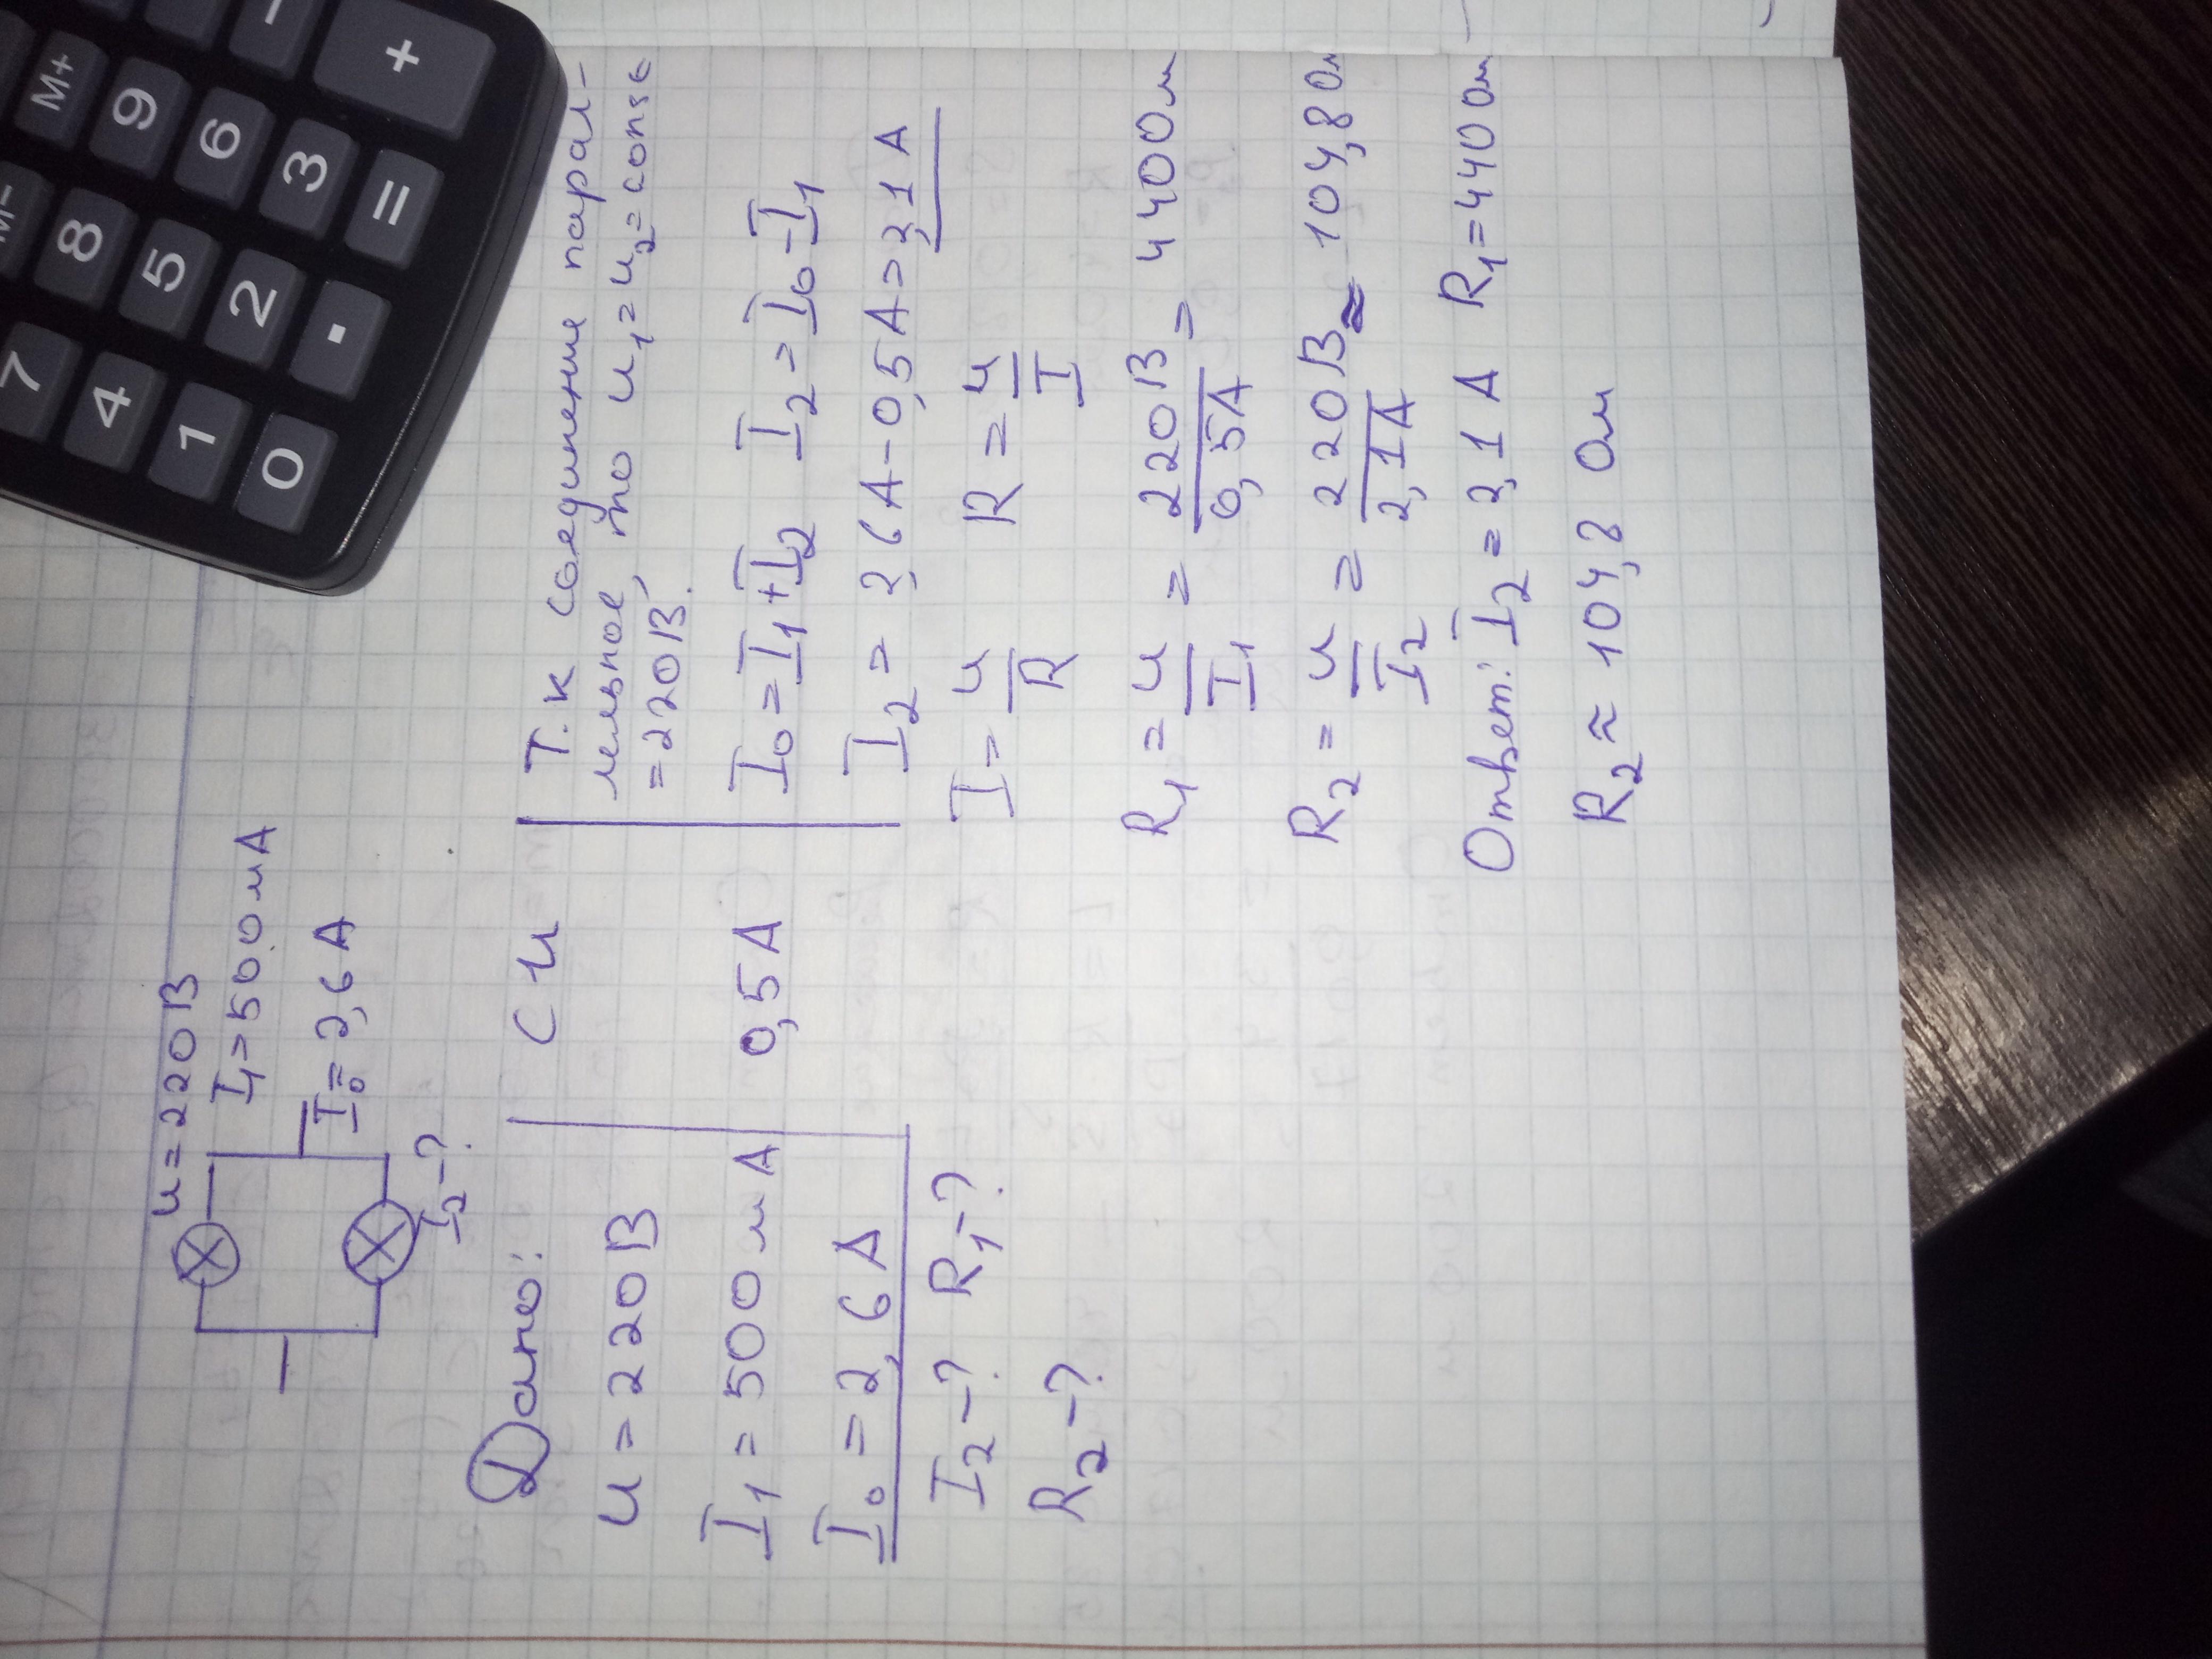 U = 220 В
I₁ = 500 мА
I₀ = 2,6 А
I₂ - ?
Дано:
U = 220 В
I₁ = 500 мА
I₀ = 2,6 А
I₂ - ? R₁ - ?
R₂ - ?
СИ
0,5 А
Т.к соединение парал-
лельное, то U₁ = U₂ = const
= 220 В.
I₀ = I₁ + I₂ I₂ = I₀ - I₁
I₂ = 2,6 А - 0,5 А = 2,1 А
I = U/R R = U/I
R₁ = U/I₁ = 220 В/0,5 А = 440 Ом
R₂ = U/I₂ = 220 В/2,1 А ≈ 104,8 Ом
Ответ: I₂ = 2,1 А R₁ = 440 Ом
R₂ ≈ 104,8 Ом
M+
M-
-
7 8 9
+
4 5 6
1 2 3
0 . =